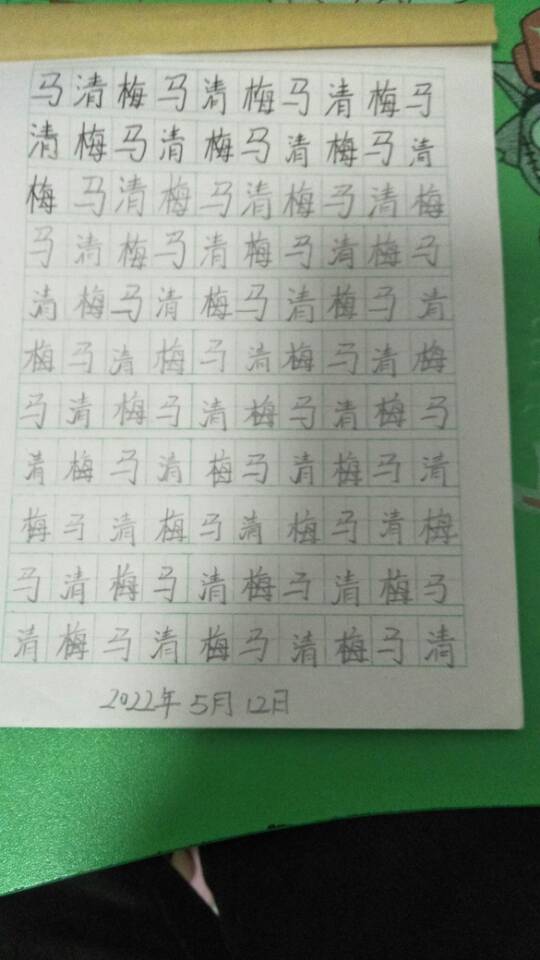 马清梅马清梅马清梅马
清梅马清梅马清梅马清
梅马清梅马清梅马清梅
马清梅马清梅马清梅马
清梅马清梅马清梅马清
梅马清梅马清梅马清梅
马清梅马清梅马清梅马
清梅马清梅马清梅马清
梅马清梅马清梅马清梅
马清梅马清梅马清梅马
清梅马清梅马清梅马清
2022年5月12日